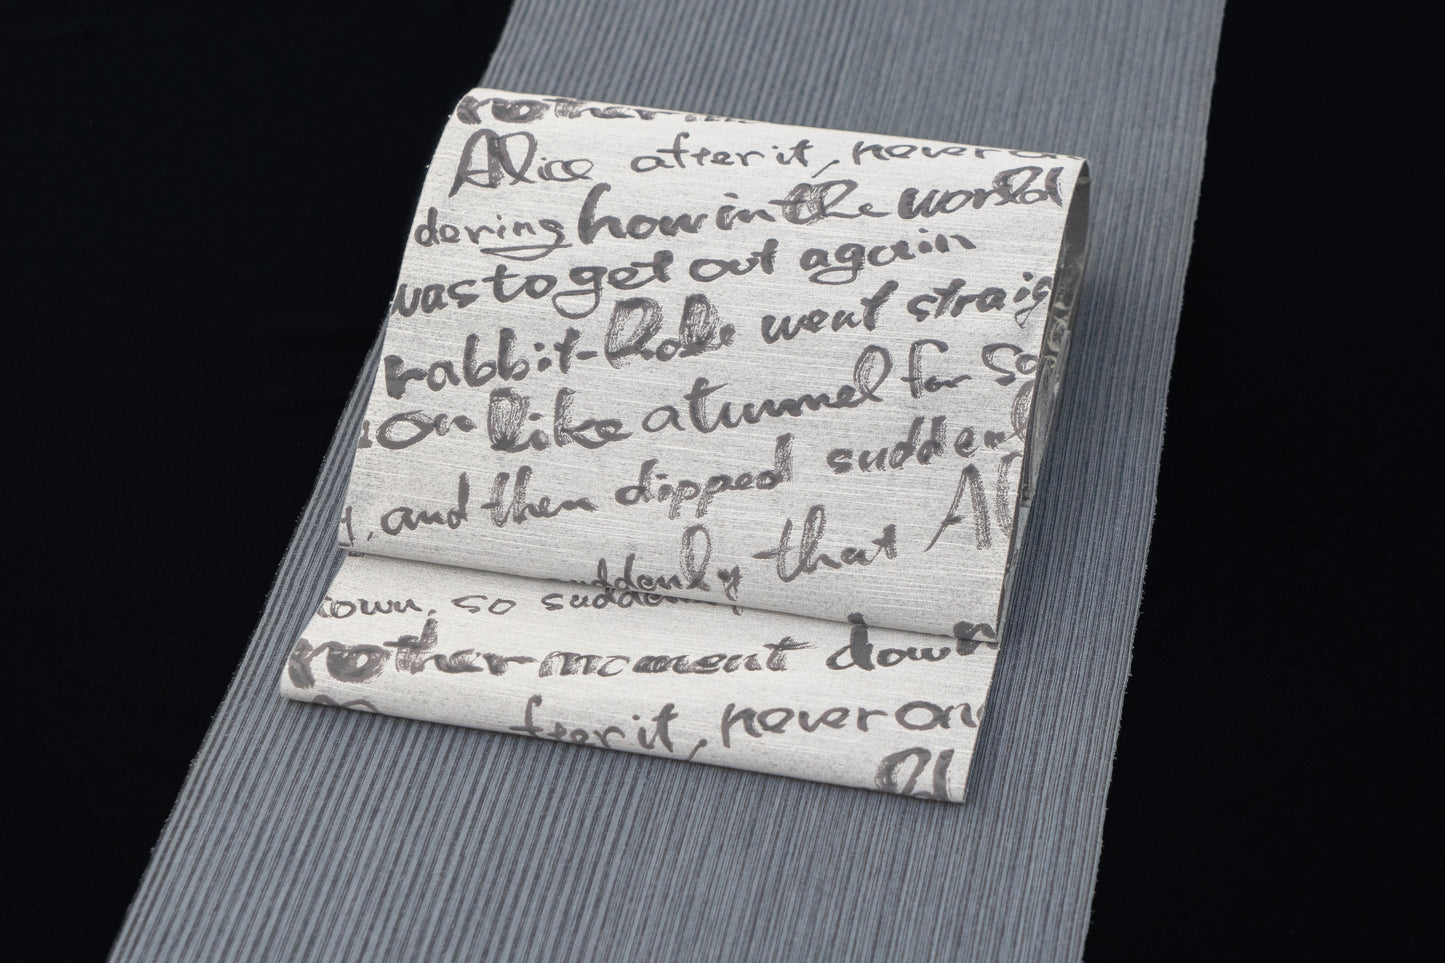 nother
Alice after it, never o
dering how in the world
was to get out again
rabbit-hole went straig
on like a tunnel for so
, and then dipped sudden
suddenly that Al
down, so suddenly
nother moment down
fter it, never on